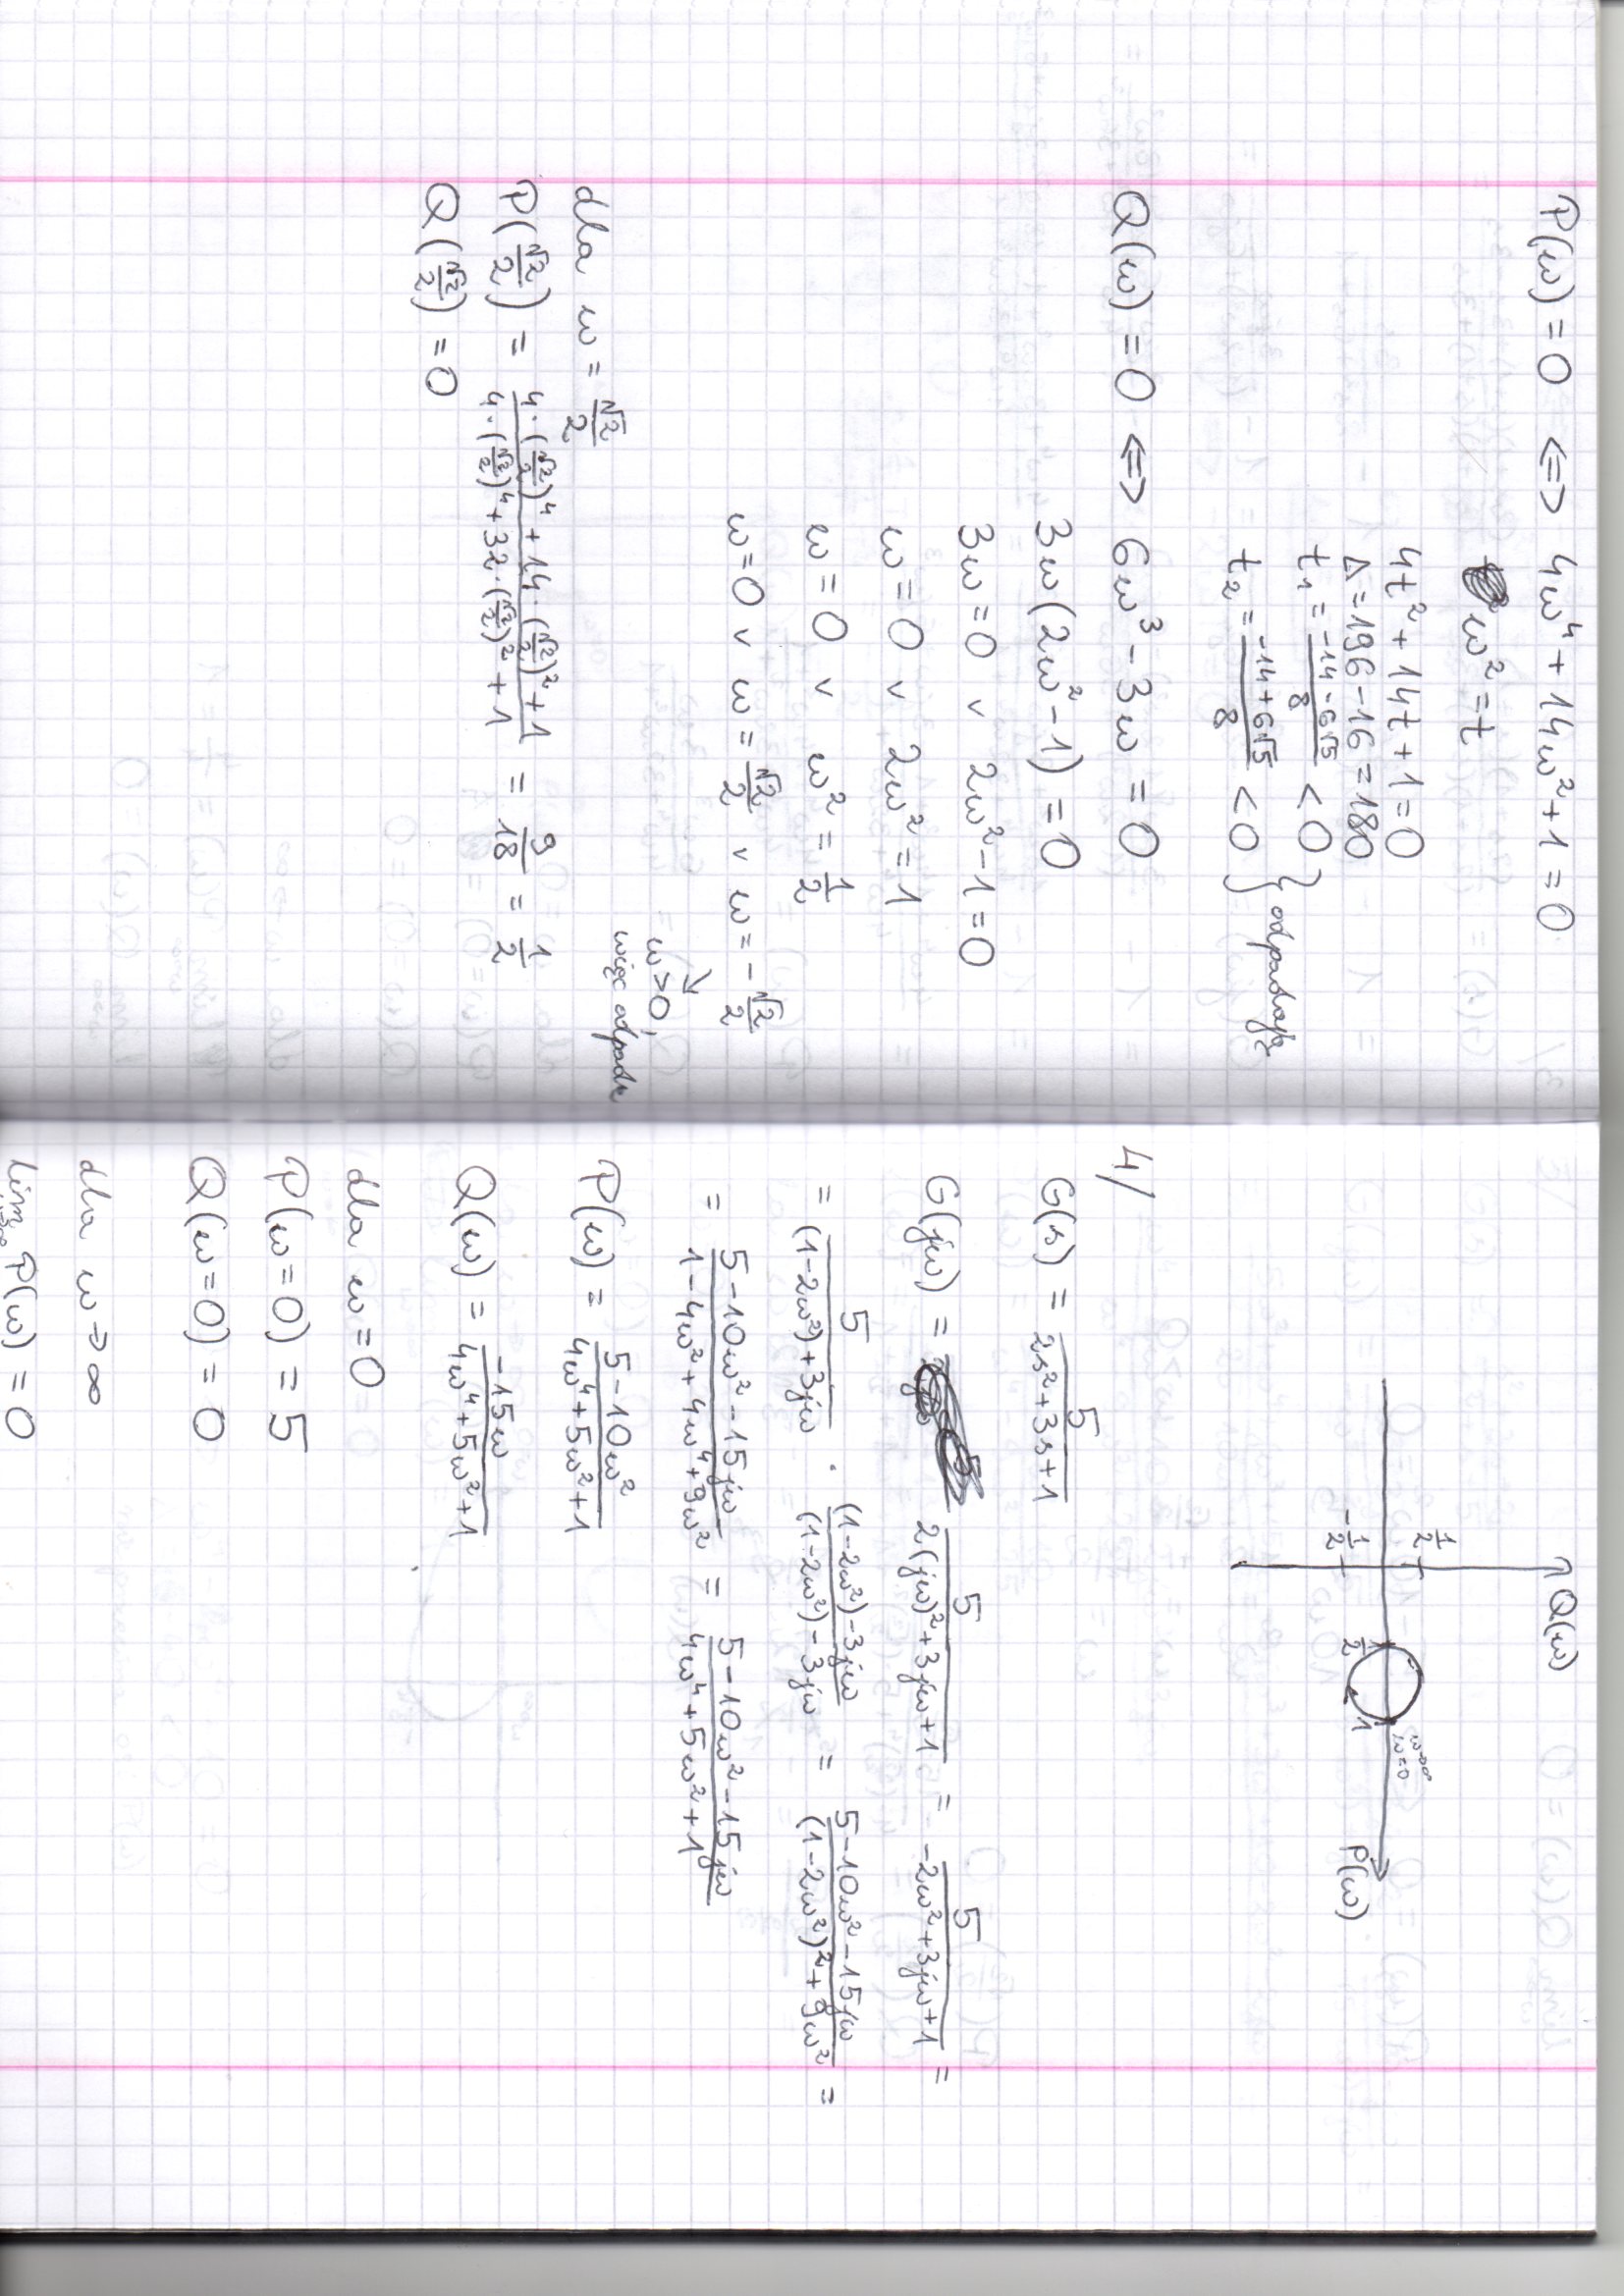 P(ω) = 0 <=> 4ω⁴ + 14ω² + 1 = 0
ω² = t
4t² + 14t + 1 = 0
Δ = 196 - 16 = 180
t₁ = (-14 - 6√5)/8 < 0
t₂ = (-14 + 6√5)/8 < 0 } odpadają
Q(ω) = 0 <=> 6ω³ - 3ω = 0
3ω(2ω² - 1) = 0
3ω = 0 ∨ 2ω² - 1 = 0
ω = 0 ∨ 2ω² = 1
ω = 0 ∨ ω² = 1/2
ω = 0 ∨ ω = √2/2 ∨ ω = -√2/2
↘
ω > 0,
więc odpada
dla ω = √2/2
P(√2/2) = (4·(√2/2)⁴ + 14·(√2/2)² + 1)/(4·(√2/2)⁴ + 32·(√2/2)² + 1) = 9/18 = 1/2
Q(√2/2) = 0
Q(ω)
1/2
ω→∞
ω=0
1/2
1
P(ω)
-1/2
4/
G(s) = 5/(2s² + 3s + 1)
G(jω) = 5/(2(jω)² + 3jω + 1) = 5/(-2ω² + 3jω + 1) =
= 5/((1-2ω²) + 3jω) · ((1-2ω²) - 3jω)/((1-2ω²) - 3jω) = (5 - 10ω² - 15jω)/((1-2ω²)² + 9ω²) =
= (5 - 10ω² - 15jω)/(1 - 4ω² + 4ω⁴ + 9ω²) = (5 - 10ω² - 15jω)/(4ω⁴ + 5ω² + 1)
P(ω) = (5 - 10ω²)/(4ω⁴ + 5ω² + 1)
Q(ω) = (-15ω)/(4ω⁴ + 5ω² + 1)
dla ω = 0
P(ω=0) = 5
Q(ω=0) = 0
dla ω → ∞
lim ω→∞ P(ω) = 0